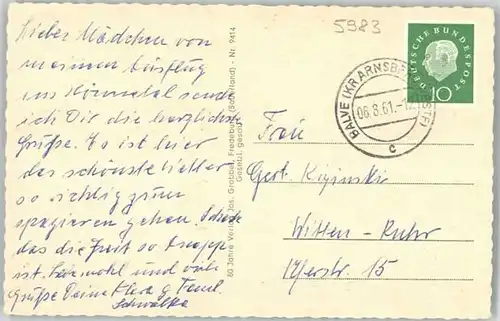 5983
Liebes Mädchen von
meinem Ausflug
ins Hönnetal sende
ich Dir die herzlichsten
Grüße. Es ist hier
das schönste Wetter
so richtig zum
spazieren gehen. Schade
das die Zeit so knapp
ist. Lebewohl und viele
Grüße Deine & Faml.
Schwalke
80 Jahre Verlag Jos. Grobbel, Fredeburg (Sauerland) - Nr. 9414
Gesetzl. gesch.
DEUTSCHE BUNDESPOST
10
BALVE (KR ARNSBERG
06.8.61.-
c
Frau
Gert.
Witten-Ruhr
15